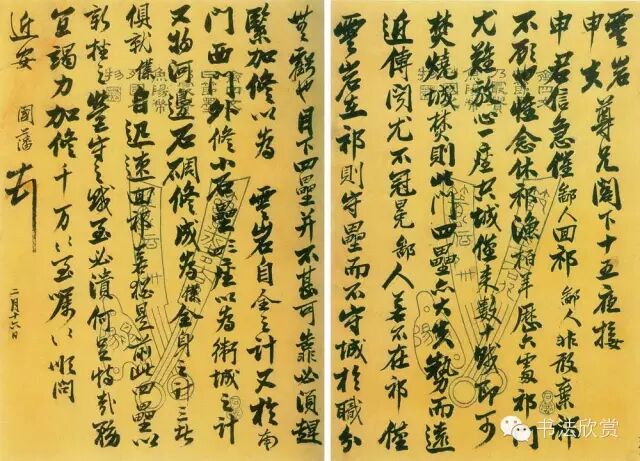 雲岩
申夫 尊兄閣下十五夜接
申君信急催鄙人回祁 鄙人非敢棄祁
不顧也惟念休祁漁 歷六處祁門
尤難放心一座大城僅來數十賊即可
焚燒城焚則此門四壘亦大失勢而遠
近傳聞尤不冠冕鄙人若不在祁僅
雲岩在祁則守壘而不守城於職分
無虧也目下四壘并不甚可靠必須趕
緊加修以為 雲岩自全之計又於南
門西門外修小石壘二座以為衛城之計
又 河邊石碉修成為僕全身之計三者
俱就僕自迅速回祁若猶是前此四壘以
新 之營守之賊至必潰何足恃哉務
宜竭力加修千萬〻至囑〻順問
近安 國藩
二月十六日
书法欣赏